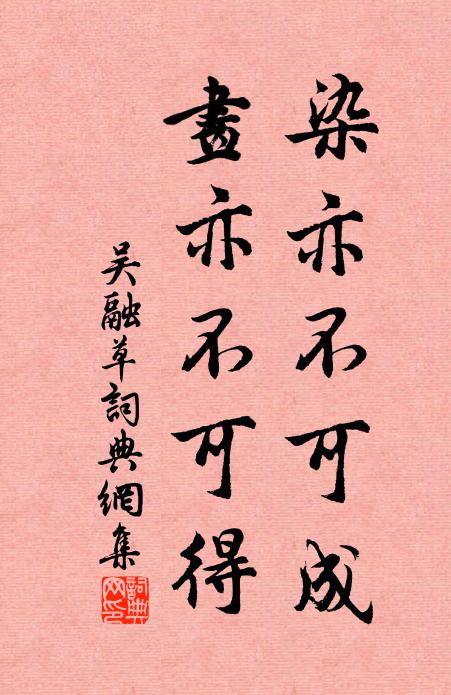 染亦不可成
畫亦不可得
吳融草詞典網集
詞典網印